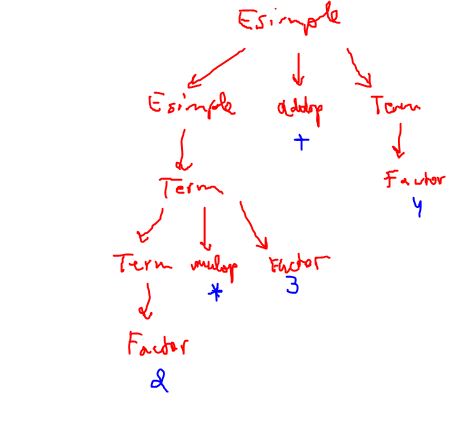 Esimple
Esimple addop Term
+
Term
Factor
4
Term mulop Factor
* 3
Factor
2